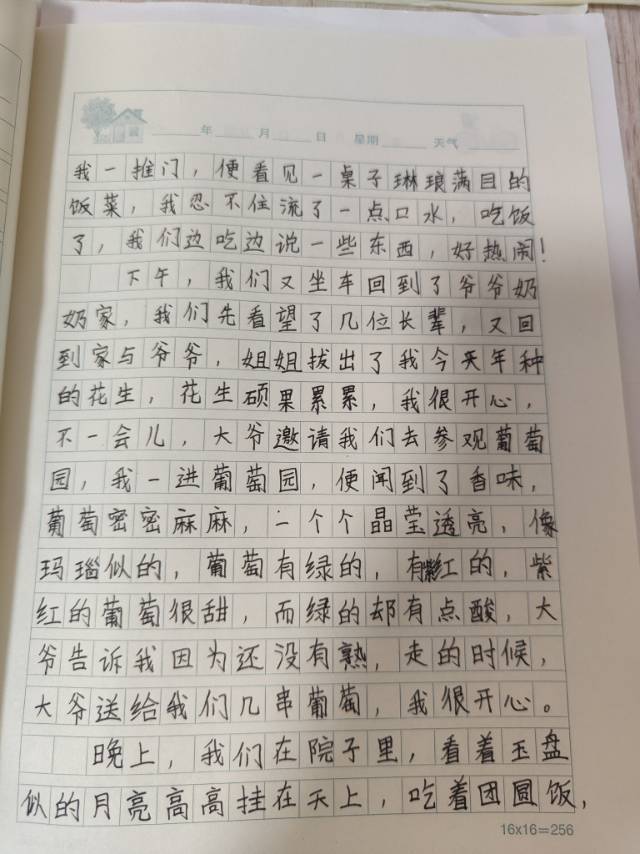 年 月 日 星期 天气
我一推门，便看见一桌子琳琅满目的
饭菜，我忍不住流了一点口水，吃饭
了，我们边吃边说一些东西，好热闹！
下午，我们又坐车回到了爷爷奶
奶家，我们先看望了几位长辈，又回
到家与爷爷，姐姐拔出了我今天年种
的花生，花生硕果累累，我很开心，
不一会儿，大爷邀请我们去参观葡萄
园，我一进葡萄园，便闻到了香味，
葡萄密密麻麻，一个个晶莹透亮，像
玛瑙似的，葡萄有绿的，有紫红的，紫
红的葡萄很甜，而绿的却有点酸，大
爷告诉我因为还没有熟，走的时候，
大爷送给我们几串葡萄，我很开心。
晚上，我们在院子里，看着玉盘
似的月亮高高挂在天上，吃着团圆饭，
16x16=256